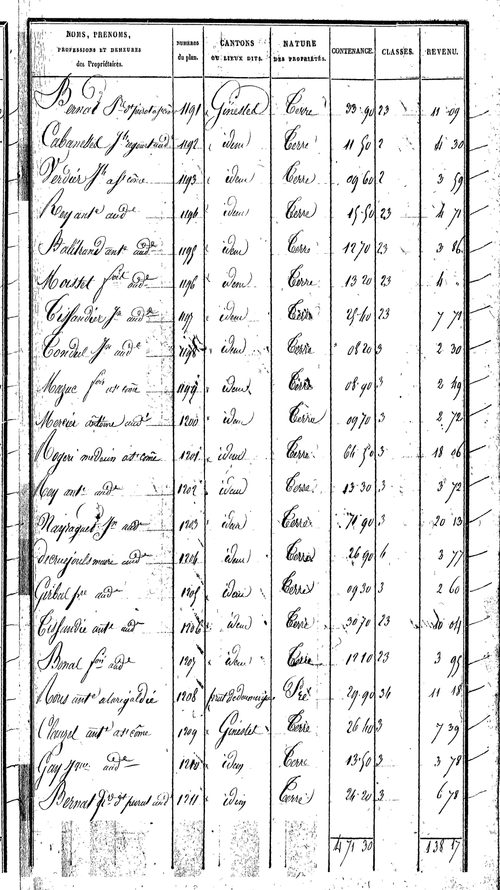 NOMS, PRENOMS, PROFESSIONS ET DEMEURES des Propriétaires. NUMÉROS du plan. CANTONS OU LIEUX DITS. NATURE DES PROPRIÉTÉS. CONTENANCE. CLASSES. REVENU.
Bernat 1191 Ginestet Terre 33 90 23 11 09
Cabanettes Jh 1192 idem Terre 11 50 2 4 30
Verdier Jh a St côme 1193 idem Terre 09 60 2 3 59
Rey ante aude 1194 idem Terre 15 50 23 4 71
Balitrand ante aude 1195 idem Terre 12 70 23 3 86
fois aude 1196 idem Terre 13 20 23 4 "
Tissandier Jn aude 1197 idem Terre 25 40 23 7 71
Jn aude 1198 idem Terre 08 20 3 2 30
Mazuc fois a St côme 1199 idem Terre 08 90 3 2 49
Mercier antoine aude 1200 idem Terre 09 70 3 2 72
Rogeri medecin a St côme 1201 idem Terre 64 50 3 18 06
Rey ante aude 1202 idem Terre 13 30 3 3 72
Nayragues Jn aude 1203 idem Terre 71 90 3 20 13
aude 1204 idem Terre 26 90 4 3 77
Girbal aude 1205 idem Terre 09 30 3 2 60
Tissandié ante aude 1206 idem Terre 30 70 23 10 04
Bonal fois aude 1207 idem Terre 12 10 23 3 95
Rous ante 1208 Pré 29 90 34 11 18
Clauzel ante a St côme 1209 Ginestet Terre 26 40 3 7 39
Gay aude 1210 idem Terre 13 50 3 3 78
Bernat 1211 idem Terre 24 20 3 6 78
471 30 138 17